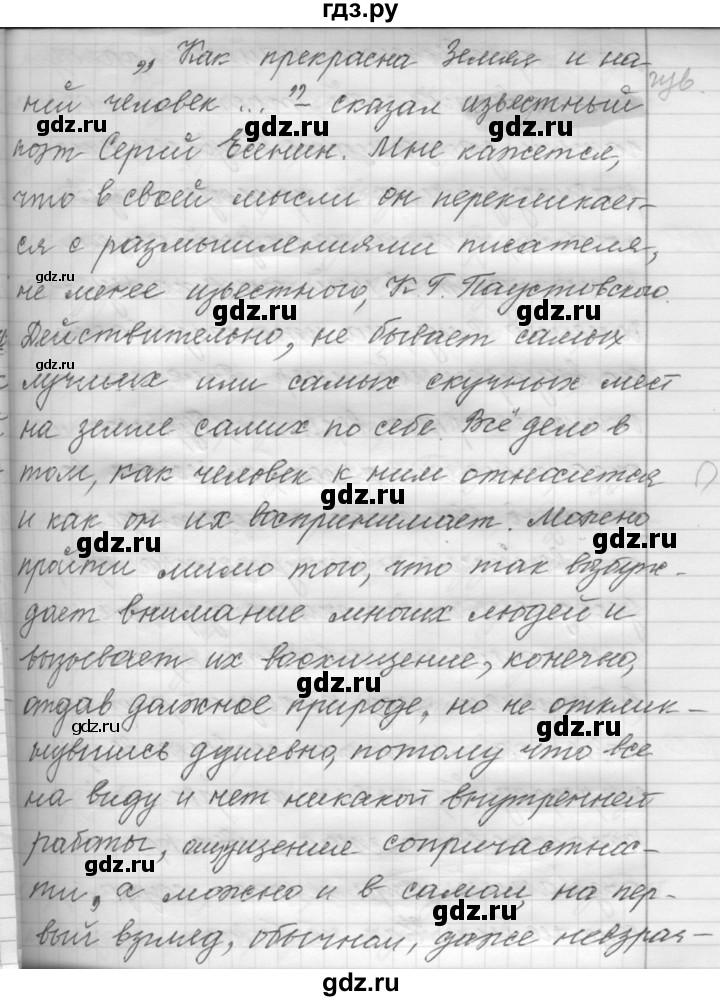 гдз.ру
„ Как прекрасна Земля и на
ней человек ..." – сказал известный
поэт Сергей Есенин. Мне кажется,
что в своей мысли он перекликает-
ся с размышлениями писателя,
не менее известного, К. Г. Паустовского.
Действительно, не бывает самых
лучших или самых скучных мест
на земле самих по себе Всё дело в
том, как человек к ним относится
и как он их воспринимает. Можно
пройти мимо того, что так возбуж-
дает внимание многих людей и
вызывает их восхищение, конечно,
отдав должное природе, но не отклик-
нувшись душевно, потому что все
на виду и нет никакой внутренней
работы, ощущение сопричастнос-
ти, а можно и в самом, на пер-
вый взгляд, обычном, даже невзрач-
gdz.ru